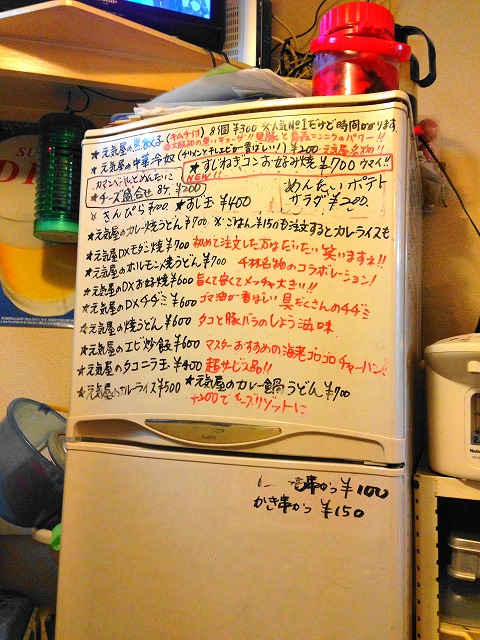 ★元気屋の黒餃子(キムチ付) 8個 ¥300 ※人気No.1だけど時間かかります
★元気屋の中華冷奴(チリメンと干しエビが香ばしい)¥200 元気屋名物!!
カマンベールとめんたいこ
★チーズ盛合せ 8ケ ¥200
NEW!! ★すじねぎコンお好み焼 ¥700 ウマイ!!
めんたいポテト
サラダ ¥200
きんぴら ¥100 ★すじ玉 ¥400
★元気屋のカレー焼うどん ¥700 ※ごはん¥150も注文するとカレーライスも
★元気屋DXモダン焼 ¥700 初めて注文した方はだいたい笑いますョ!!
★元気屋のホルモン焼うどん ¥700 千林名物のコラボレーション!
★元気屋のDXお好焼 ¥600 旨くて安くてメッチャ大きい!!
★元気屋のDXチヂミ ¥600 ゴマ油が香ばしい具だくさんのチヂミ
★元気屋の焼うどん ¥600 タコと豚バラのしょう油味
★元気屋のエビ炒飯 ¥600 マスターおすすめの海老ゴロゴロチャーハン!!
★元気屋のタコニラ玉 ¥400 超サービス品!!
★元気屋のカレーライス ¥500 ★元気屋のカレー鍋うどん ¥700
+200でチーズリゾットに
串かつ ¥100
かき串かつ ¥150